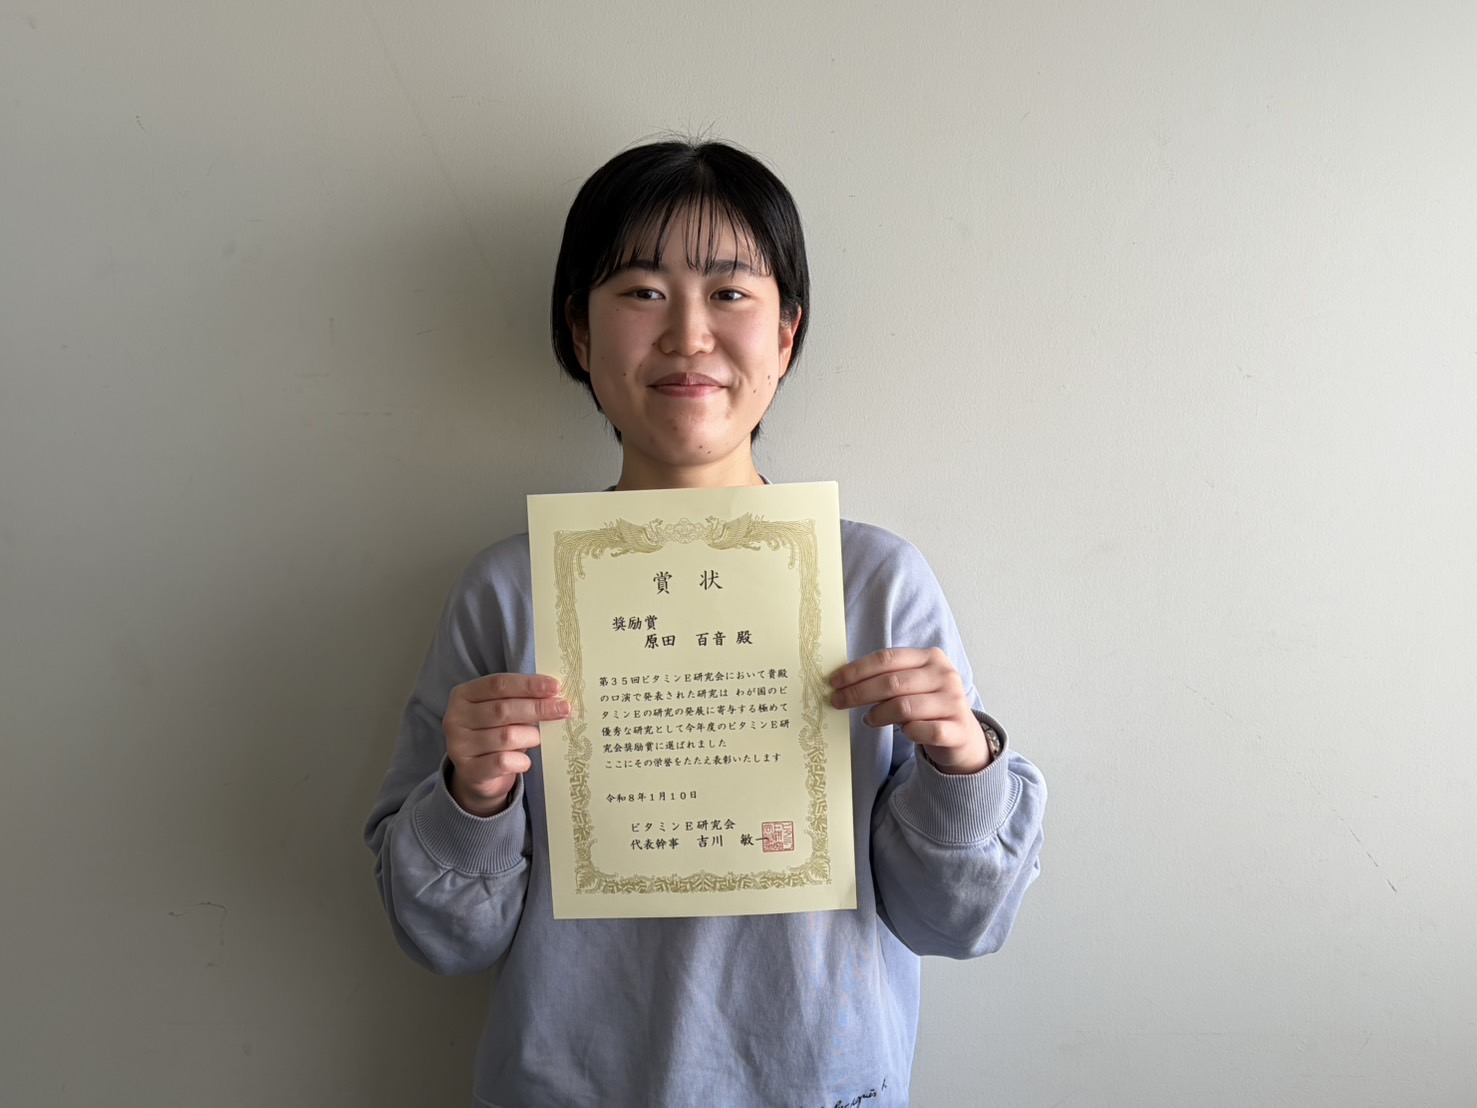 賞 状
奨励賞
原田 百音 殿
第35回ビタミンE研究会において貴殿
の口演で発表された研究は わが国のビ
タミンEの研究の発展に寄与する極めて
優秀な研究として今年度のビタミンE研
究会奨励賞に選ばれました
ここにその栄誉をたたえ表彰いたします
令和8年1月10日
ビタミンE研究会
代表幹事 吉川 敏一